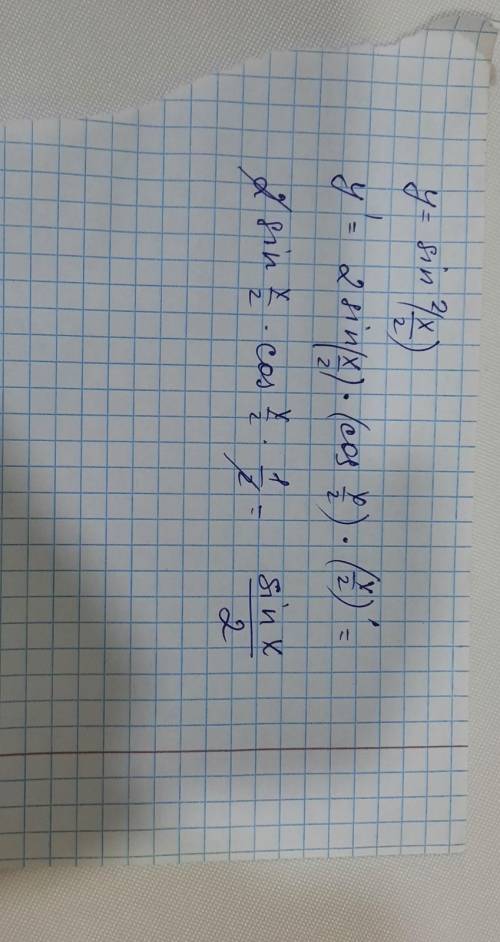 y = sin²(x/2)
y' = 2 sin(x/2) · (cos x/2) · (x/2)' =
2 sin x/2 · cos x/2 · 1/2 = sin x/2